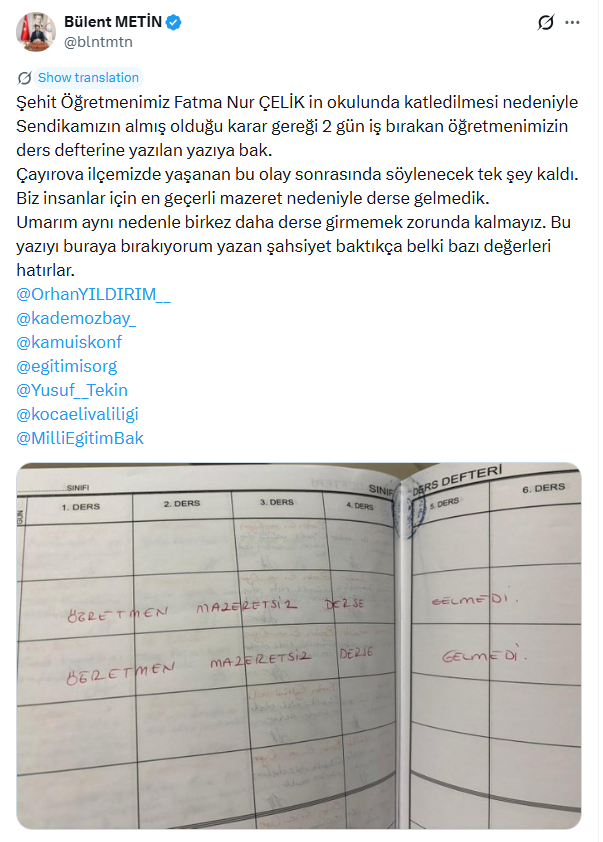 Bülent METİN
@blntmtn
Show translation
Şehit Öğretmenimiz Fatma Nur ÇELİK in okulunda katledilmesi nedeniyle
Sendikamızın almış olduğu karar gereği 2 gün iş bırakan öğretmenimizin
ders defterine yazılan yazıya bak.
Çayırova ilçemizde yaşanan bu olay sonrasında söylenecek tek şey kaldı.
Biz insanlar için en geçerli mazeret nedeniyle derse gelmedik.
Umarım aynı nedenle birkez daha derse girmemek zorunda kalmayız. Bu
yazıyı buraya bırakıyorum yazan şahsiyet baktıkça belki bazı değerleri
hatırlar.
@OrhanYILDIRIM__
@kademozbay_
@kamuiskonf
@egitimisorg
@Yusuf__Tekin
@kocaelivaliligi
@MilliEgitimBak
SINIFI SINIF DERS DEFTERİ
GÜN 1. DERS 2. DERS 3. DERS 4. DERS 5. DERS 6. DERS
ÖĞRETMEN MAZERETSİZ DERSE GELMEDİ.
ÖĞRETMEN MAZERETSİZ DERSE GELMEDİ.